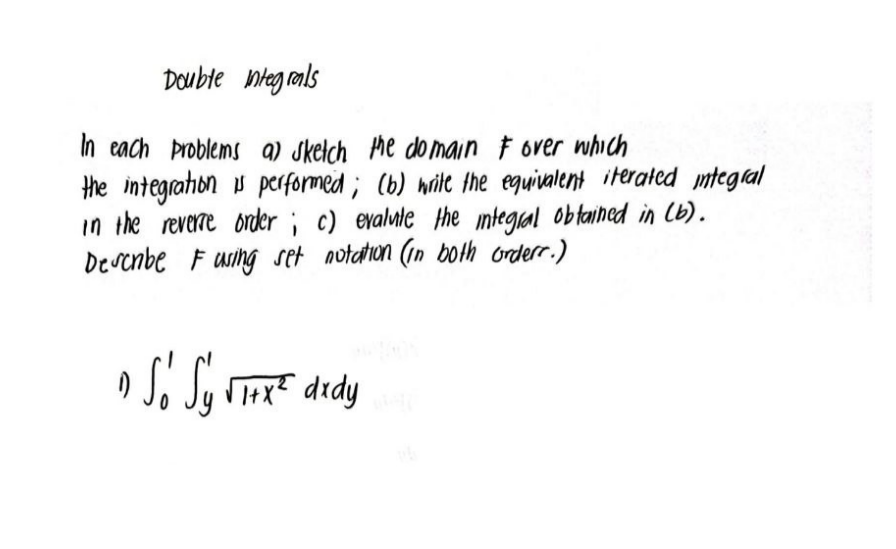 Double Integrals
In each problems a) sketch the domain F over which
the integration is performed; (b) write the equivalent iterated integral
in the reverse order; c) evaluate the integral obtained in (b).
Describe F using set notation (in both orders.)
1) ∫₀¹ ∫ᵧ¹ √1+x² dxdy